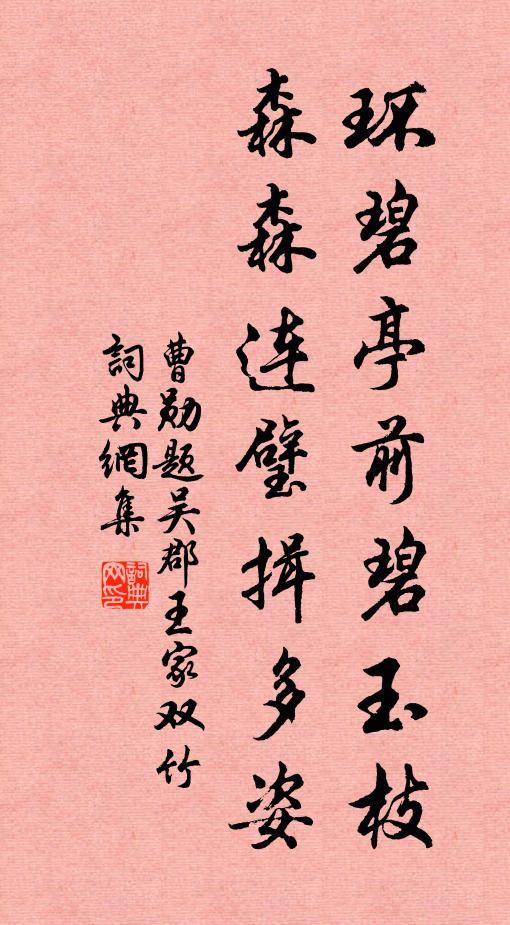 环碧亭前碧玉枝
森森连璧揖多姿
曹勋题吴郡王家双竹
詞典網集
詞典網印